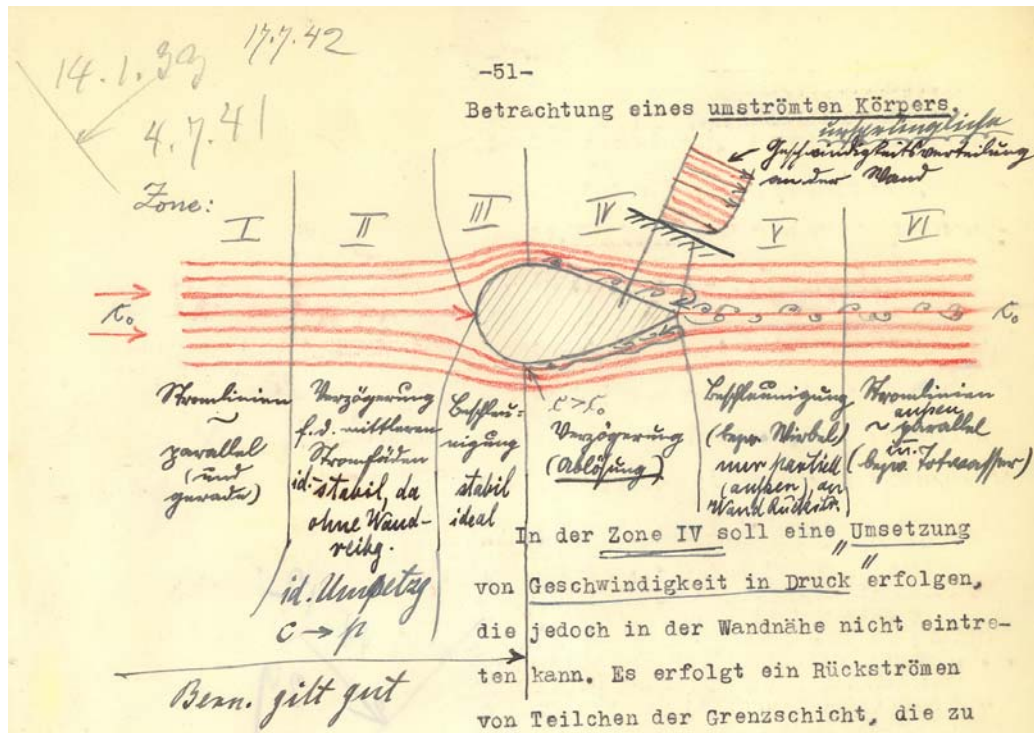 14.1.39
17.7.42
4.7.41
-51-
Betrachtung eines umströmten Körpers.
ursprüngliche
Geschwindigkeitsverteilung
an der Wand
Zone:
I II III IV V VI
c₀ c₀
c>c₀
Stromlinien
~
parallel
(und
gerade)
Verzögerung
f.d. mittleren
Stromfäden
id.-stabil, da
ohne Wand-
reibg.
id. Umsetzg
c → p
Beschleu-
nigung
stabil
ideal
Verzögerung
(Ablösung)
Beschleunigung
(bezw. Wirbel)
nur partiell
(außen) an
Wand Rückstr.
Stromlinien
außen
~ parallel
(bezw. Totwasser)
Bern. gilt gut
In der Zone IV soll eine "Umsetzung
von Geschwindigkeit in Druck" erfolgen,
die jedoch in der Wandnähe nicht eintre-
ten kann. Es erfolgt ein Rückströmen
von Teilchen der Grenzschicht, die zu